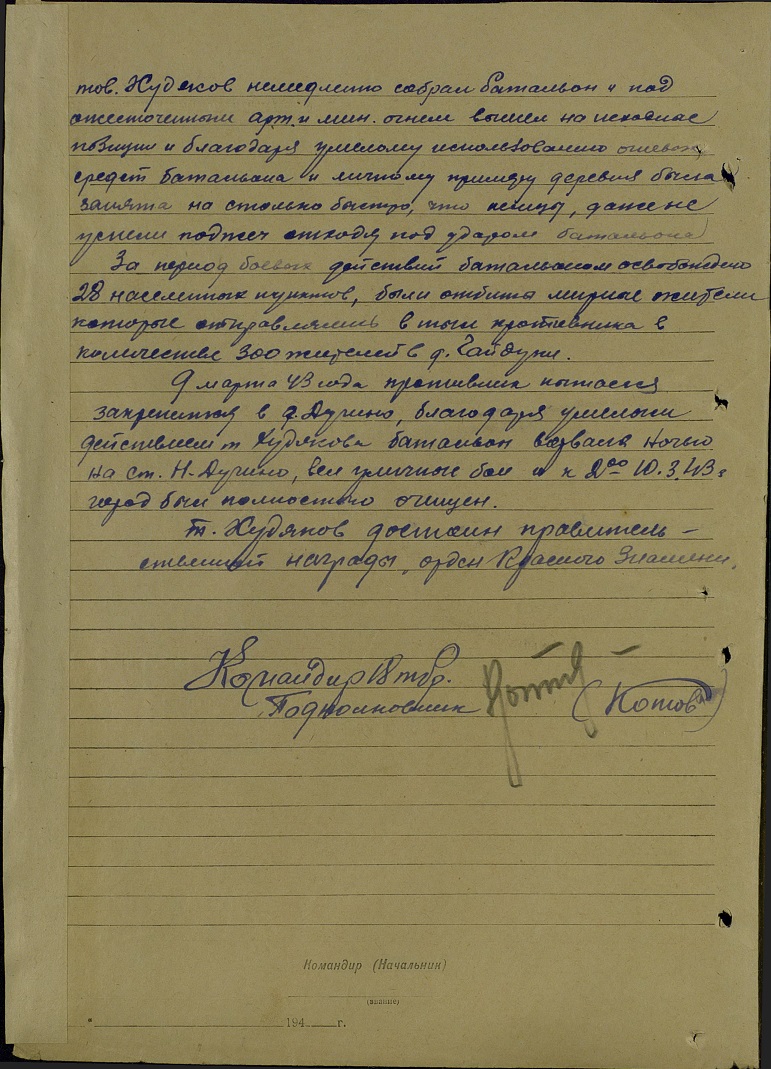 тов. Худяков немедленно собрал батальон и под
ожесточенным арт. и мин. огнем вышел на исходные
позиции и благодаря умелому использованию огневых
средст батальона и личному примеру деревня была
занята на столько быстро, что немцы, даже не
успели поджеч отходя под ударом батальона
За период боевых действий батальоном освобождено
28 населенных пунктов, были отбиты мирные жители
которые отправлялись в тыл противника в
количестве 300 жителей в д. Гайдуки.
9 марта 43 года противник пытался
закрепиться в д. Дугино, благодаря умелым
действием т Худякова батальон ворвался ночью
на ст. Н-Дугино, вел уличные бои и к 2⁰⁰ 10.3.43 г
город был полностью очищен.
Т. Худяков достоин правитель-
ственной награды, орден Красного Знамени.
Командир 18 тбр.
Подполковник (Котов)
Командир (Начальник)
(звание)
" 194 г.